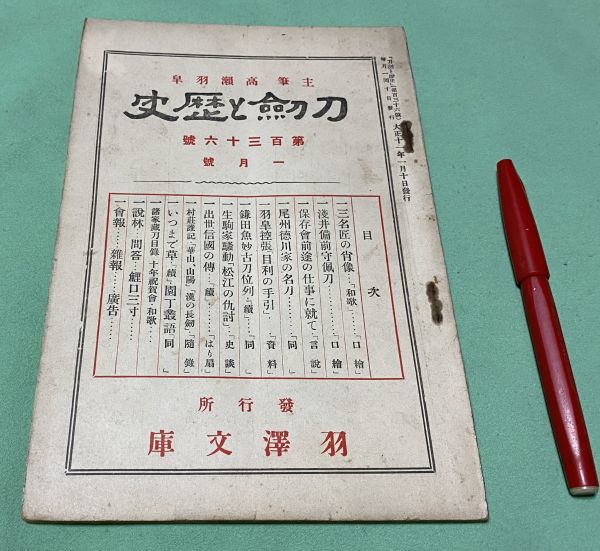 主筆高瀬羽皐
刀劍と歴史
第百三十六號
一月號
大正十一年一月十日發行
目次
一三名匠の肖像…「和歌」…「口繪」
一淺井備前守佩刀………「口繪」
一保存會前途の仕事に就て「言說」
一尾州德川家の名刀………「同」
一羽皐控張「目利の手引」…「資料」
一鎌田魚妙古刀位列「續」…「同」
一生駒家騷動「松江の仇討」「史談」
一出世信國の傳…「續」……「はり扇」
一村莊謹記「華山、山陽」「漢の長劍」「隨錄」
一いつまで草「續」園丁叢語「同」
一諸家藏刀目錄 十年祝賀會 和歌……
一說林…問答…鯉口三寸……
一會報……雜報……廣告……
發行所
羽澤文庫